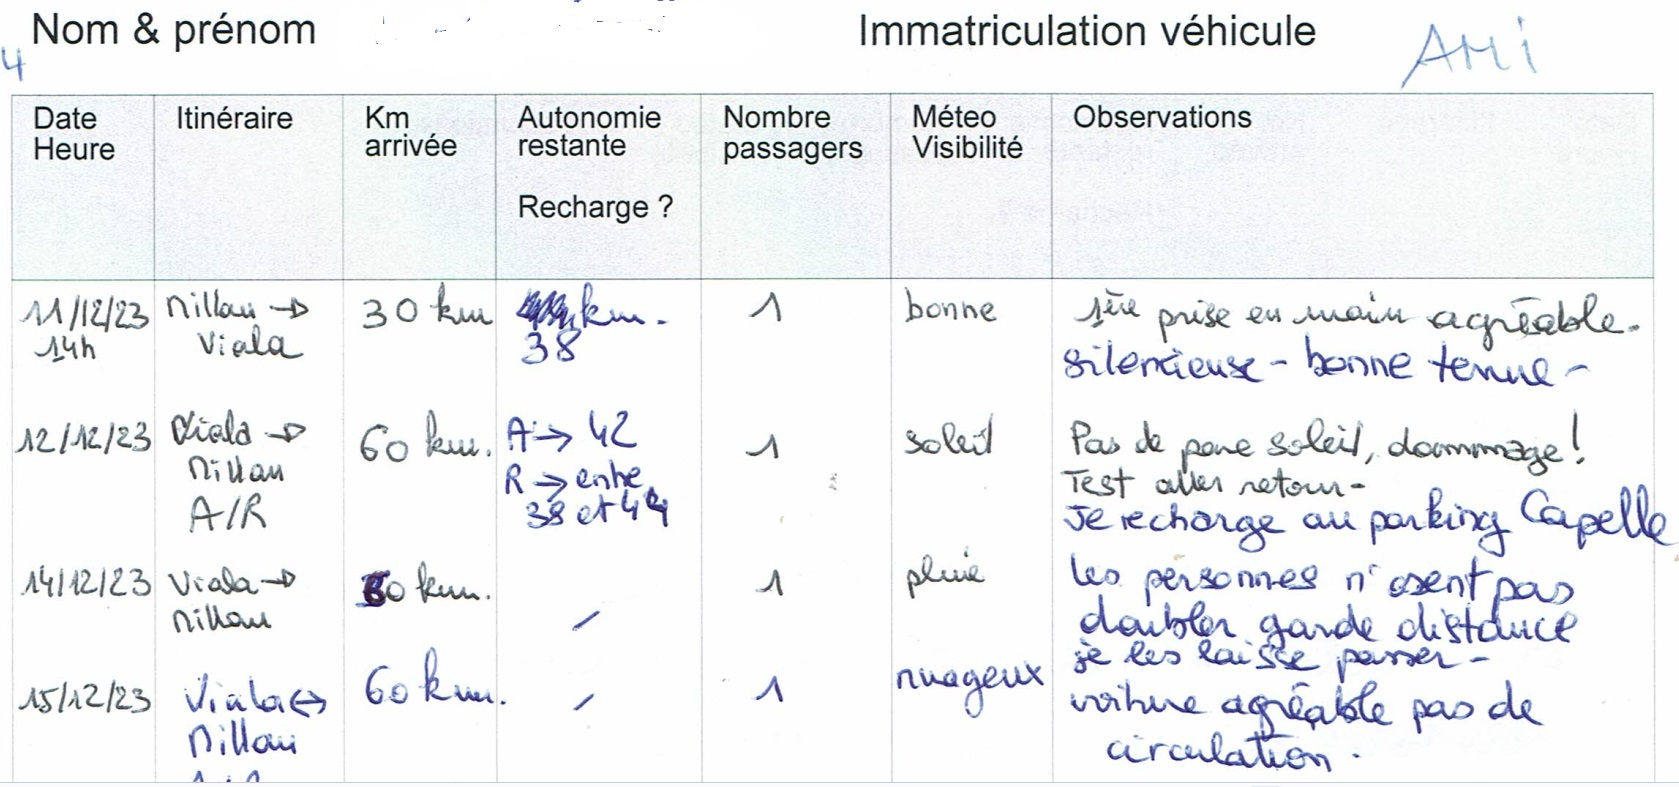 Nom & prénom
Immatriculation véhicule AMi
4
Date Heure
Itinéraire
Km arrivée
Autonomie restante
Recharge ?
Nombre passagers
Météo Visibilité
Observations
11/12/23 14h
Millau → Viala
30 km
km.
38
1
bonne
1ère prise en main agréable.
silencieuse - bonne tenue -
12/12/23
Viala →
Millau
A/R
60 km.
A → 42
R → entre
38 et 44
1
soleil
Pas de pare soleil, dommage !
Test aller retour -
Je recharge au parking Capelle
14/12/23
Viala →
Millau
60 km.
/
1
pluie
les personnes n'osent pas
doubler garde distance
je les laisse passer -
15/12/23
Viala ↔
Millau
A/R
60 km.
/
1
nuageux
voiture agréable pas de
circulation.